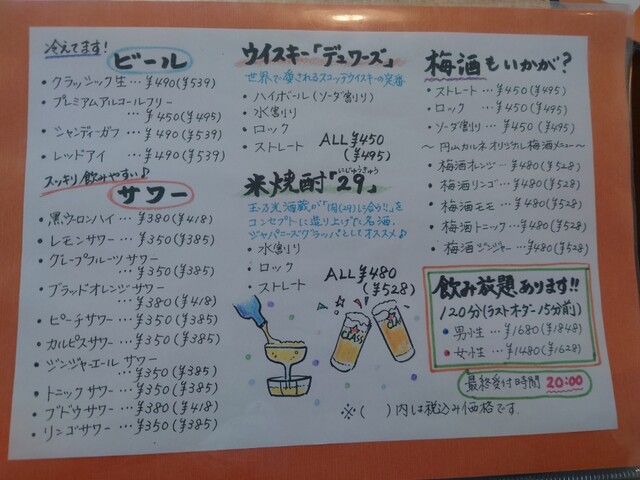 冷えてます!
ビール
・クラッシック生…¥490(¥539)
・プレミアムアルコールフリー
…¥450(¥495)
・シャンディーガフ…¥490(¥539)
・レッドアイ…¥490(¥539)
スッキリ飲みやすい♪
サワー
・黒ウーロンハイ…¥380(¥418)
・レモンサワー…¥350(¥385)
・グレープフルーツサワー
…¥350(¥385)
・ブラッドオレンジサワー
…¥380(¥418)
・ピーチサワー…¥350(¥385)
・カルピスサワー…¥350(¥385)
・ジンジャーエールサワー
…¥350(¥385)
・トニックサワー…¥350(¥385)
・ブドウサワー…¥380(¥418)
・リンゴサワー…¥350(¥385)
ウイスキー「デュワーズ」
世界で愛されるスコッチウイスキーの定番
・ハイボール(ソーダ割り)
・水割り
・ロック
・ストレート
ALL¥450
(¥495)
米焼酎「29」
にじゅうきゅう
玉乃光酒蔵が「肉(29)に合う!!」を
コンセプトに造り上げた名酒。
ジャパニーズグラッパとしてオススメ♪
・水割り
・ロック
・ストレート
ALL¥480
(¥528)
CLASSIC
CLASSIC
※( )内は税込み価格です。
梅酒もいかが?
・ストレート…¥450(¥495)
・ロック…¥450(¥495)
・ソーダ割り…¥450(¥495)
〜円山カルネオリジナル梅酒メニュー〜
・梅酒オレンジ…¥480(¥528)
・梅酒リンゴ…¥480(¥528)
・梅酒モモ…¥480(¥528)
・梅酒トニック…¥480(¥528)
・梅酒ジンジャー…¥480(¥528)
飲み放題あります!!
120分(ラストオーダー15分前)
・男性…¥1680(¥1848)
・女性…¥1480(¥1628)
最終受付時間 20:00